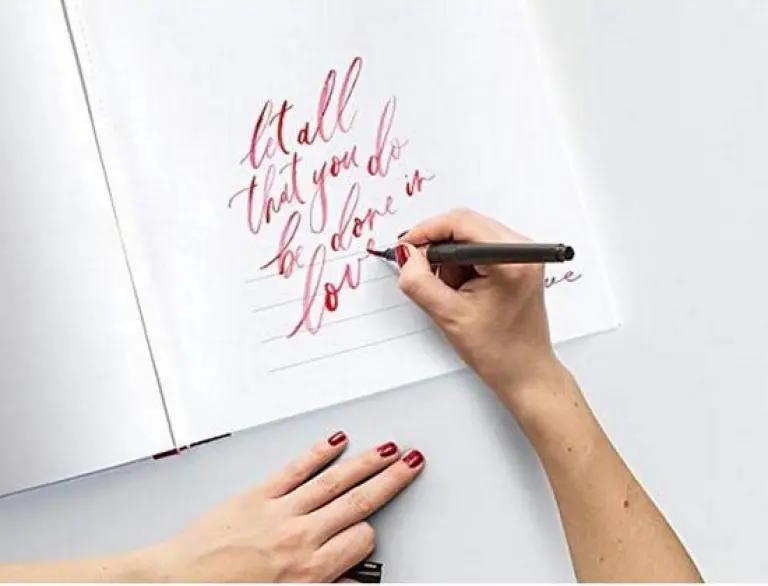 let all
that you do
be done in
love
ve